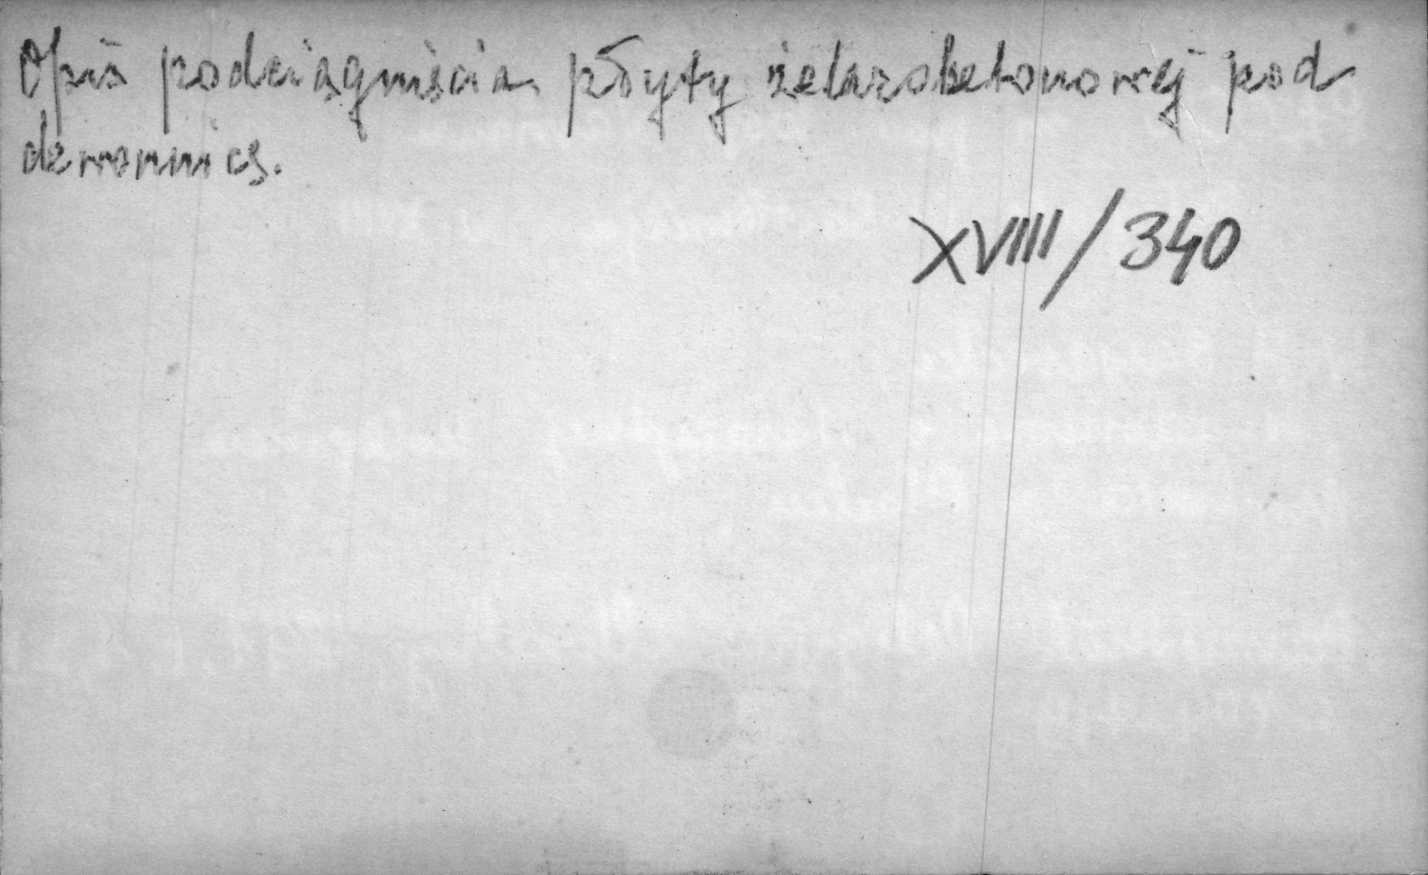 Opis podciągnięcia płyty żelazobetonowej pod
dzwonnicę.
XVIII/340